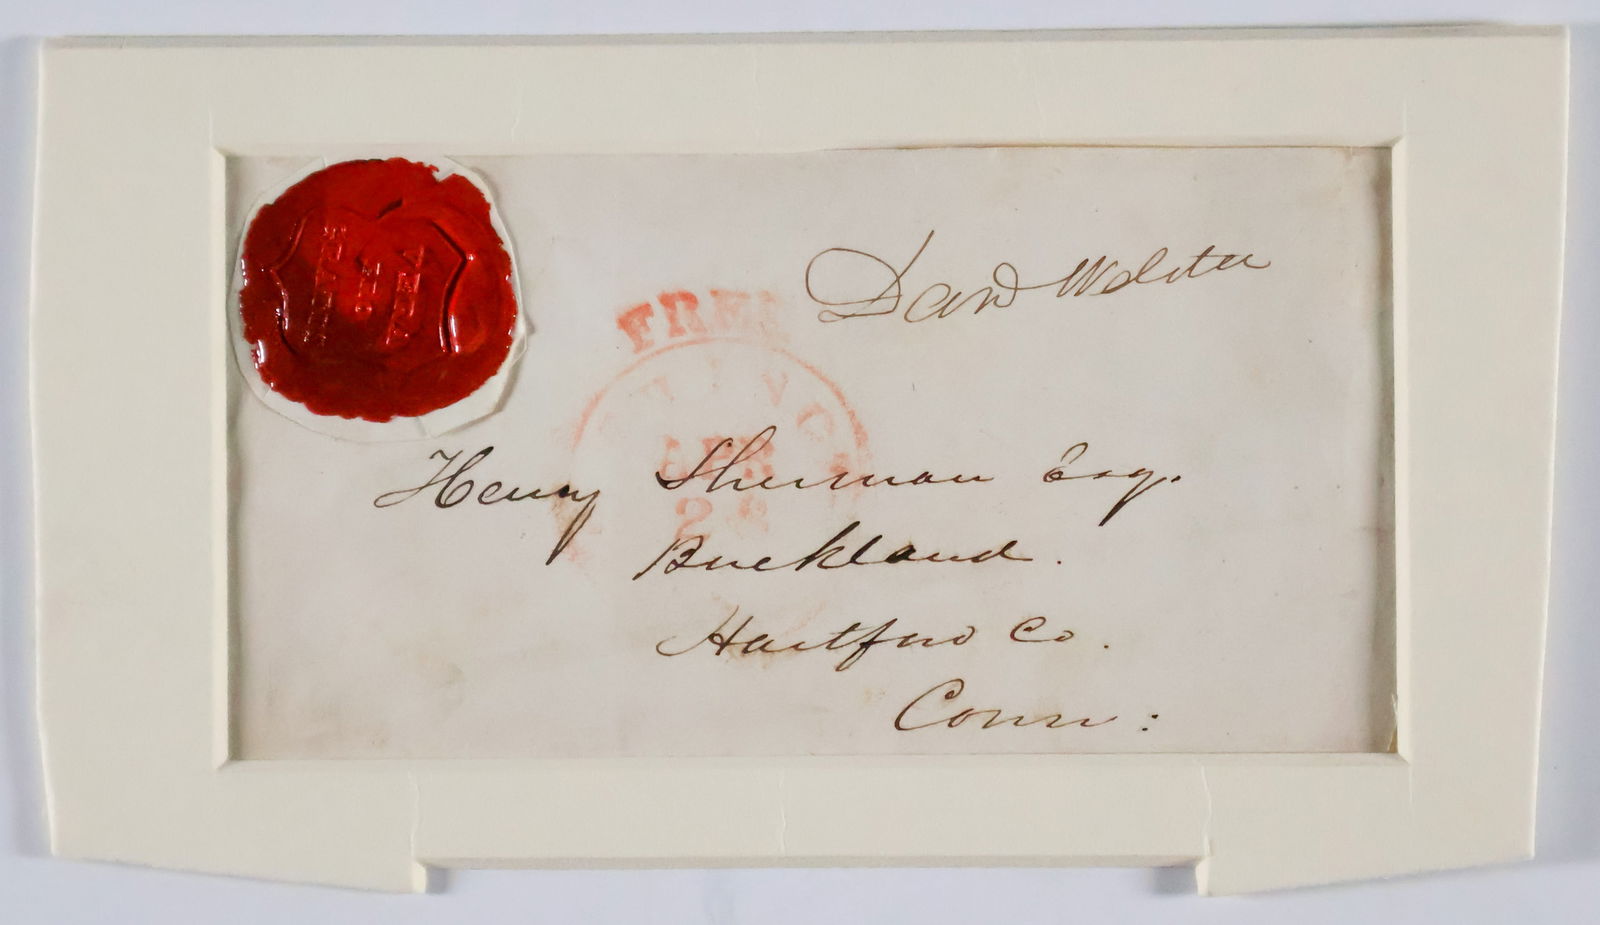 Danl Webster
FREE
APR
28
Henry Sherman Esq.
Buckland.
Hartford Co.
Conn: